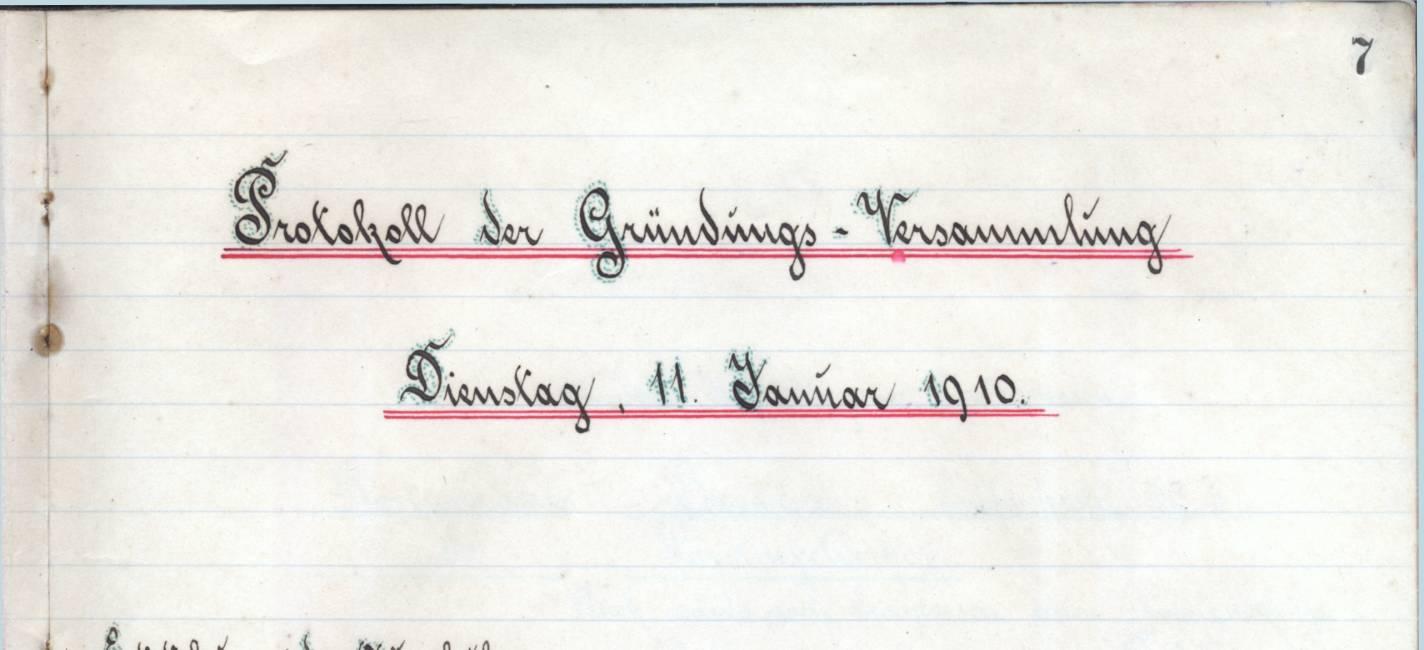 7
Protokoll der Gründungs - Versammlung
Dienstag, 11. Januar 1910.